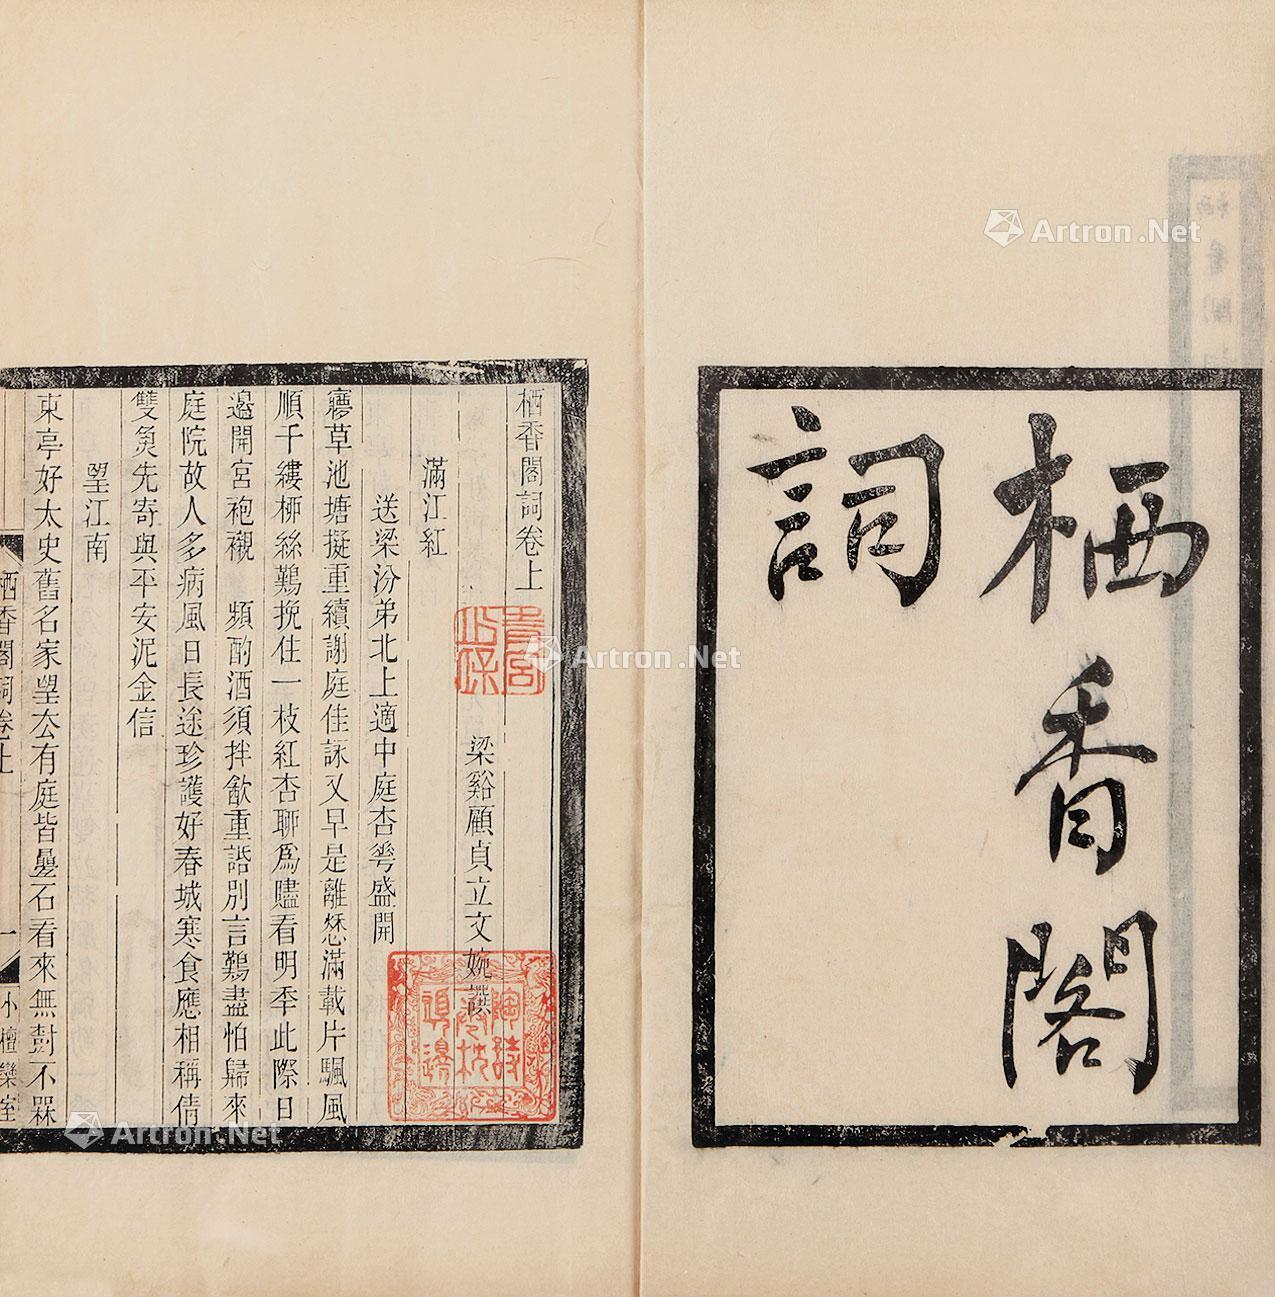 栖香閣
詞
栖香閣詞卷上
梁谿顧貞立文婉譔
滿江紅
送梁汾弟北上適中庭杏雩盛開
夢草池塘擬重續謝庭佳詠又早是離愁滿載片颿風
順千縷桺絲鷬挽住一枝紅杏聊爲贐看明秊此際日
邊開宮袍襯 頻酌酒須拌飮重諧別言鷬盡怕歸來
庭院故人多病風日長途珍護好春城寒食應相稱倩
雙奐先寄與平安泥金信
朢江南
東亭好太史舊名家朢厺有庭皆曡石看來無尌不槑
栖香閣詞卷上
一
小檀欒室
Artron.Net
Artron.Net
Artron.Net